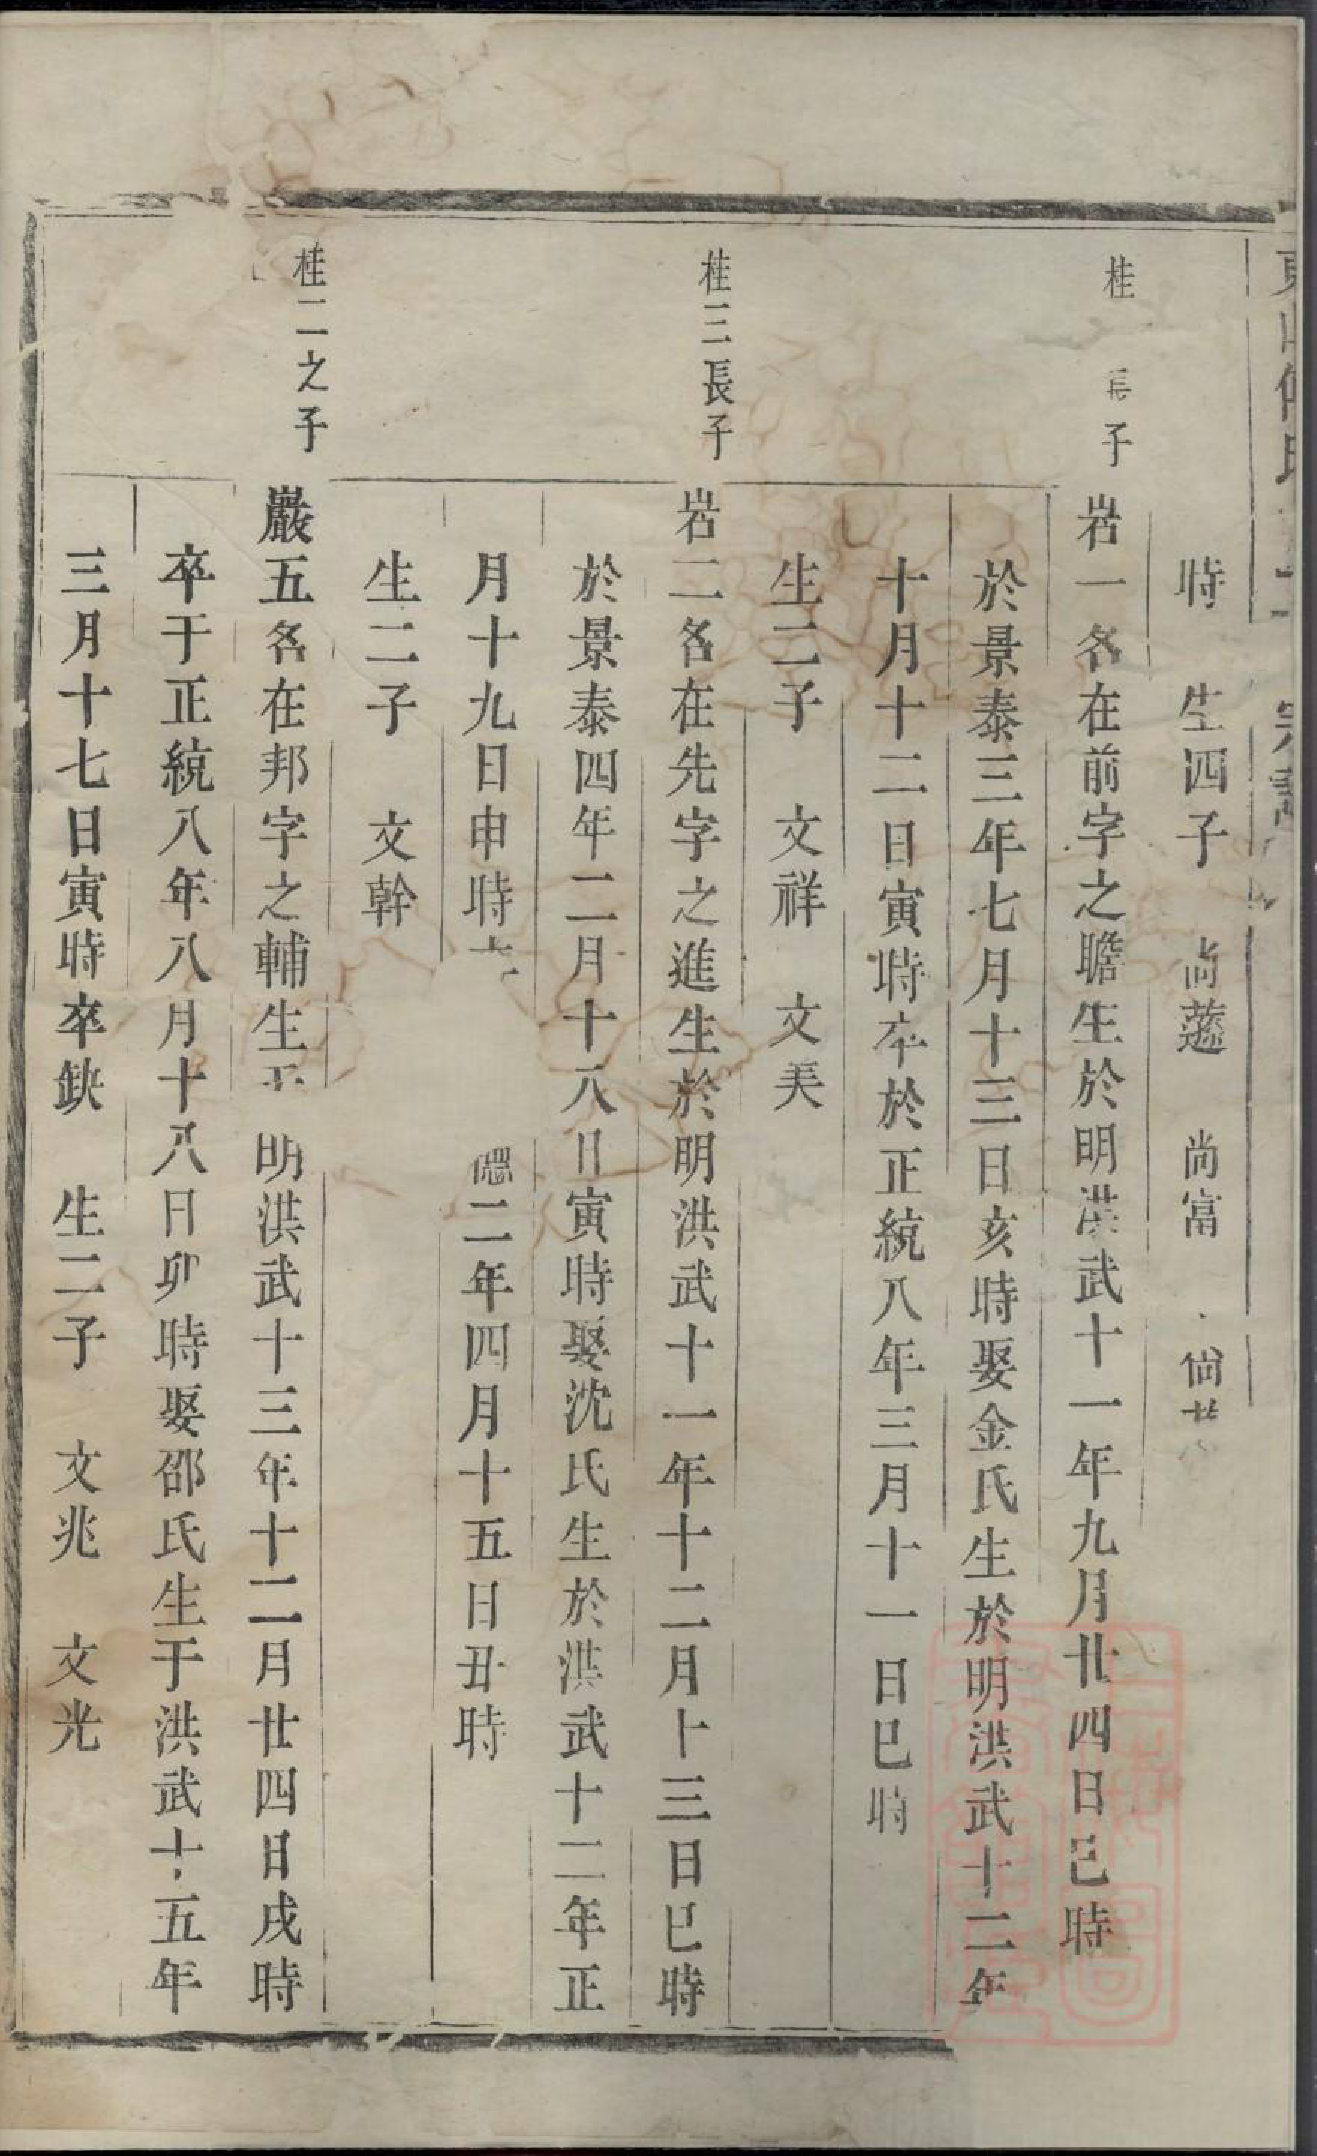 時 生四子 尚蓫 尚富
桂 子
岩一名在前字之瞻生於明洪武十一年九月廿四日巳時
於景泰三年七月十三日亥時娶金氏生於明洪武十二年
十月十二日寅時卒於正統八年三月十一日巳時
生二子 文祥 文美
桂三長子
岩二名在先字之進生於明洪武十一年十二月十三日巳時
於景泰四年二月十八日寅時娶沈氏生於洪武十二年正
月十九日申時 二年四月十五日丑時
生二子 文幹
桂二之子
巖五名在邦字之輔生 明洪武十三年十二月廿四日戌時
卒于正統八年八月十八日卯時娶邵氏生于洪武十五年
三月十七日寅時卒缺 生二子 文兆 文光